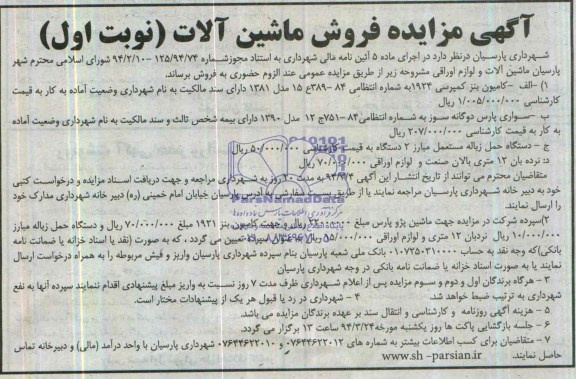 آگهی مزایده فروش ماشین آلات (نوبت اول)
شهرداری پارسیان درنظر دارد در اجرای ماده ۵ آئین نامه مالی شهرداری به استناد مجوزشماره ۱۲۵/۹۴/۷۴ -۹۴/۲/۱۰ شورای اسلامی محترم شهر
پارسیان ماشین آلات و لوازم اوراقی مشروحه زیر از طریق مزایده عمومی عند الزوم حضوری به فروش برساند.
۱) -الف -کامیون بنز کمپرسی ۱۹۲۴به شماره انتظامی ۸۴ -۳۸۹ع ۱۵ مدل ۱۳۸۱ دارای سند مالکیت به نام شهرداری وضعیت آماده به کار به قیمت
کارشناسی ۱/۰۰۵/۰۰۰/۰۰۰ ریال
ب -سواری پارس دوگانه سوز به شماره انتظامی۸۴ -۷۵۱ج ۱۲ مدل ۱۳۹۰ دارای بیمه شخص ثالث و سند مالکیت به نام شهرداری وضعیت آماده
به کار به قیمت کارشناسی ۲۰۷/۰۰۰/۰۰۰ ریال
ج - دستگاه حمل زباله مستعمل مبارز ۲ دستگاه به قیمت کارشناسی ۵۰/۰۰۰/۰۰۰ ریال
د: نرده بان ۱۲ متری بالان صنعت و لوازم اوراقی ۷۰/۰۰۰/۰۰۰ ریال
متقاضیان محترم می توانند از تاریخ انتشار این آگهی ۹۴/۳/۴ به مدت ۲۰ روز به شهرداری مراجعه و جهت دریافت اسناد مزایده و درخواست کتبی
خود به دبیر خانه شهرداری پارسیان مراجعه نمایند یا از طریق پست سفارشی به آدرس پارسیان خیابان امام خمینی (ره) دبیر خانه شهرداری مدارک خود
را ارسال نمایند.
۲)سپرده شرکت در مزایده جهت ماشین پژو پارس مبلغ ریال و جهت کامیون بنز ۱۹۲۱ مبلغ ۷۰/۰۰۰/۰۰۰ ریال و دستگاه حمل زباله مبارز
۱۰/۰۰۰/۰۰۰ ریال نردبان ۱۲ متری و لوازم اوراقی ریال سپرده تعیین می گردد ، که به صورت (نقد یا اسناد خزانه یا ضمانت نامه
بانکی)که وجه نقد به حساب ۰۱۰۷۲۵۰۳۱۰۰۰۰ بانک ملی شعبه پارسیان بنام سپرده شهرداری پارسیان واریز و فیش مربوطه را به همراه درخواست ارسال
نمایند یا به صورت اسناد خزانه یا ضمانت نامه بانکی در وجه شهرداری پارسیان
۳ - هرگاه برندگان اول و دوم و سوم مزایده پس از اعلام شهرداری ظرف مدت ۷ روز نسبت به واریز مبلغ پیشنهادی اقدام ننمایند سپرده آنها به نفع
شهرداری به ترتیب ضبط خواهد شد. ۴ - شهرداری در رد یا قبول هر یک از پیشنهادات مختار است.
۵ - هزینه آگهی روزنامه و کارشناسی و انتقال سند بر عهده برندگان مزایده می باشد.
۶ - جلسه بازگشایی پاکت ها روز یکشنبه مورخه ۹۴/۳/۲۴ ساعت ۱۳ برگزار می گردد.
۷ - متقاضیان برای کسب اطلاعات بیشتر به شماره های ۰۷۶۴۴۶۲۲۰۱۲ و ۰۷۶۴۴۶۲۲۰۱۰ شهرداری پارسیان با واحد درآمد (مالی) و دبیرخانه تماس
حاصل نمایند. www.sh -parsian.ir
ParsNamadData